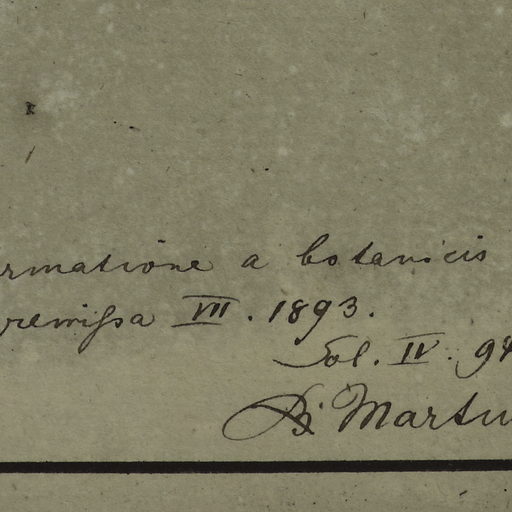 rmatione a botanicis
remissa VII. 1893.
Sol. IV. 94
Martin